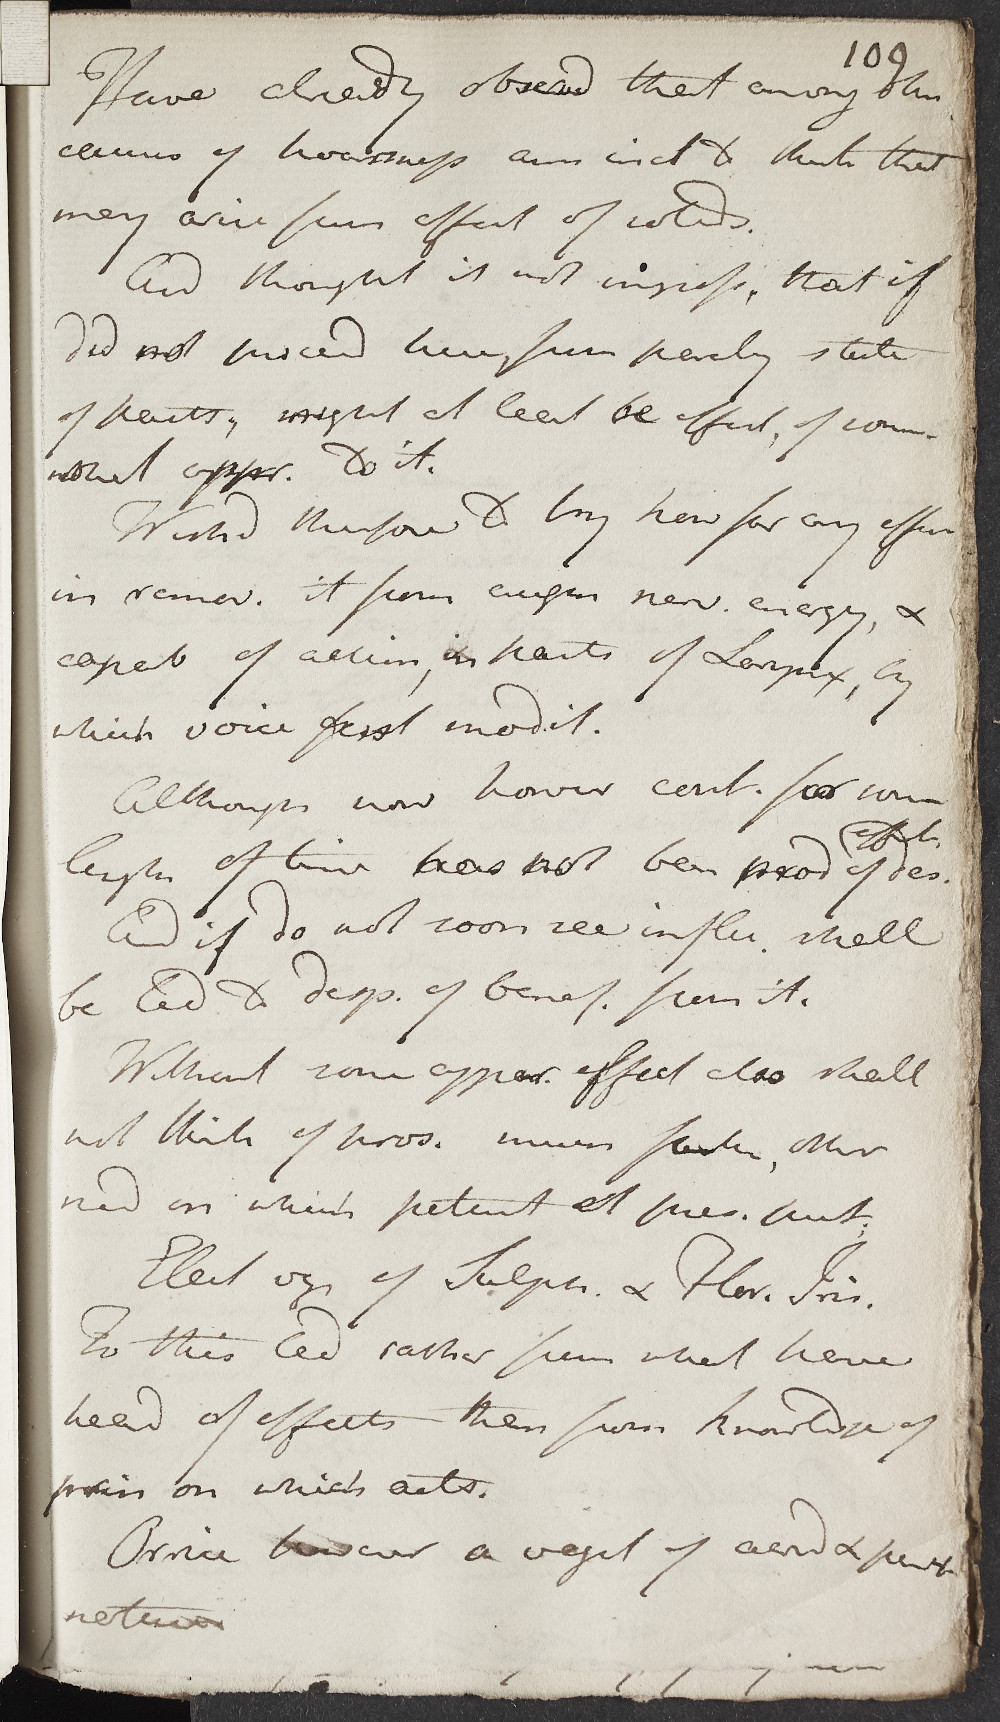 109
Have already observd that among other
causes of hoarseness am incl to think that
may arise from effect of colds.
And thought it not improb, that if
did not proceed here, from paraly state
of parts, might at least be effect, of some-
what appr. to it.
Wishd therefore to try how far any effect
in remov. it from augm nerv. energy, &
capab of action, in parts of Larynx, by
which voice first modif.
Although now howev cont. for some
length of time has not been prod effects
of des.
And if do not soon see influ. shall
be led to desp. of benef. from it.
Without some appear. effect also shall
not think of pros. much further, other
med on which patient at pres. put;
Elect vz of Sulph. & Flor. Iris.
To this led rather from what have
heard of effects than from knowledge of
prin on which acts.
Orrice however a veget of acrid & penet
nature